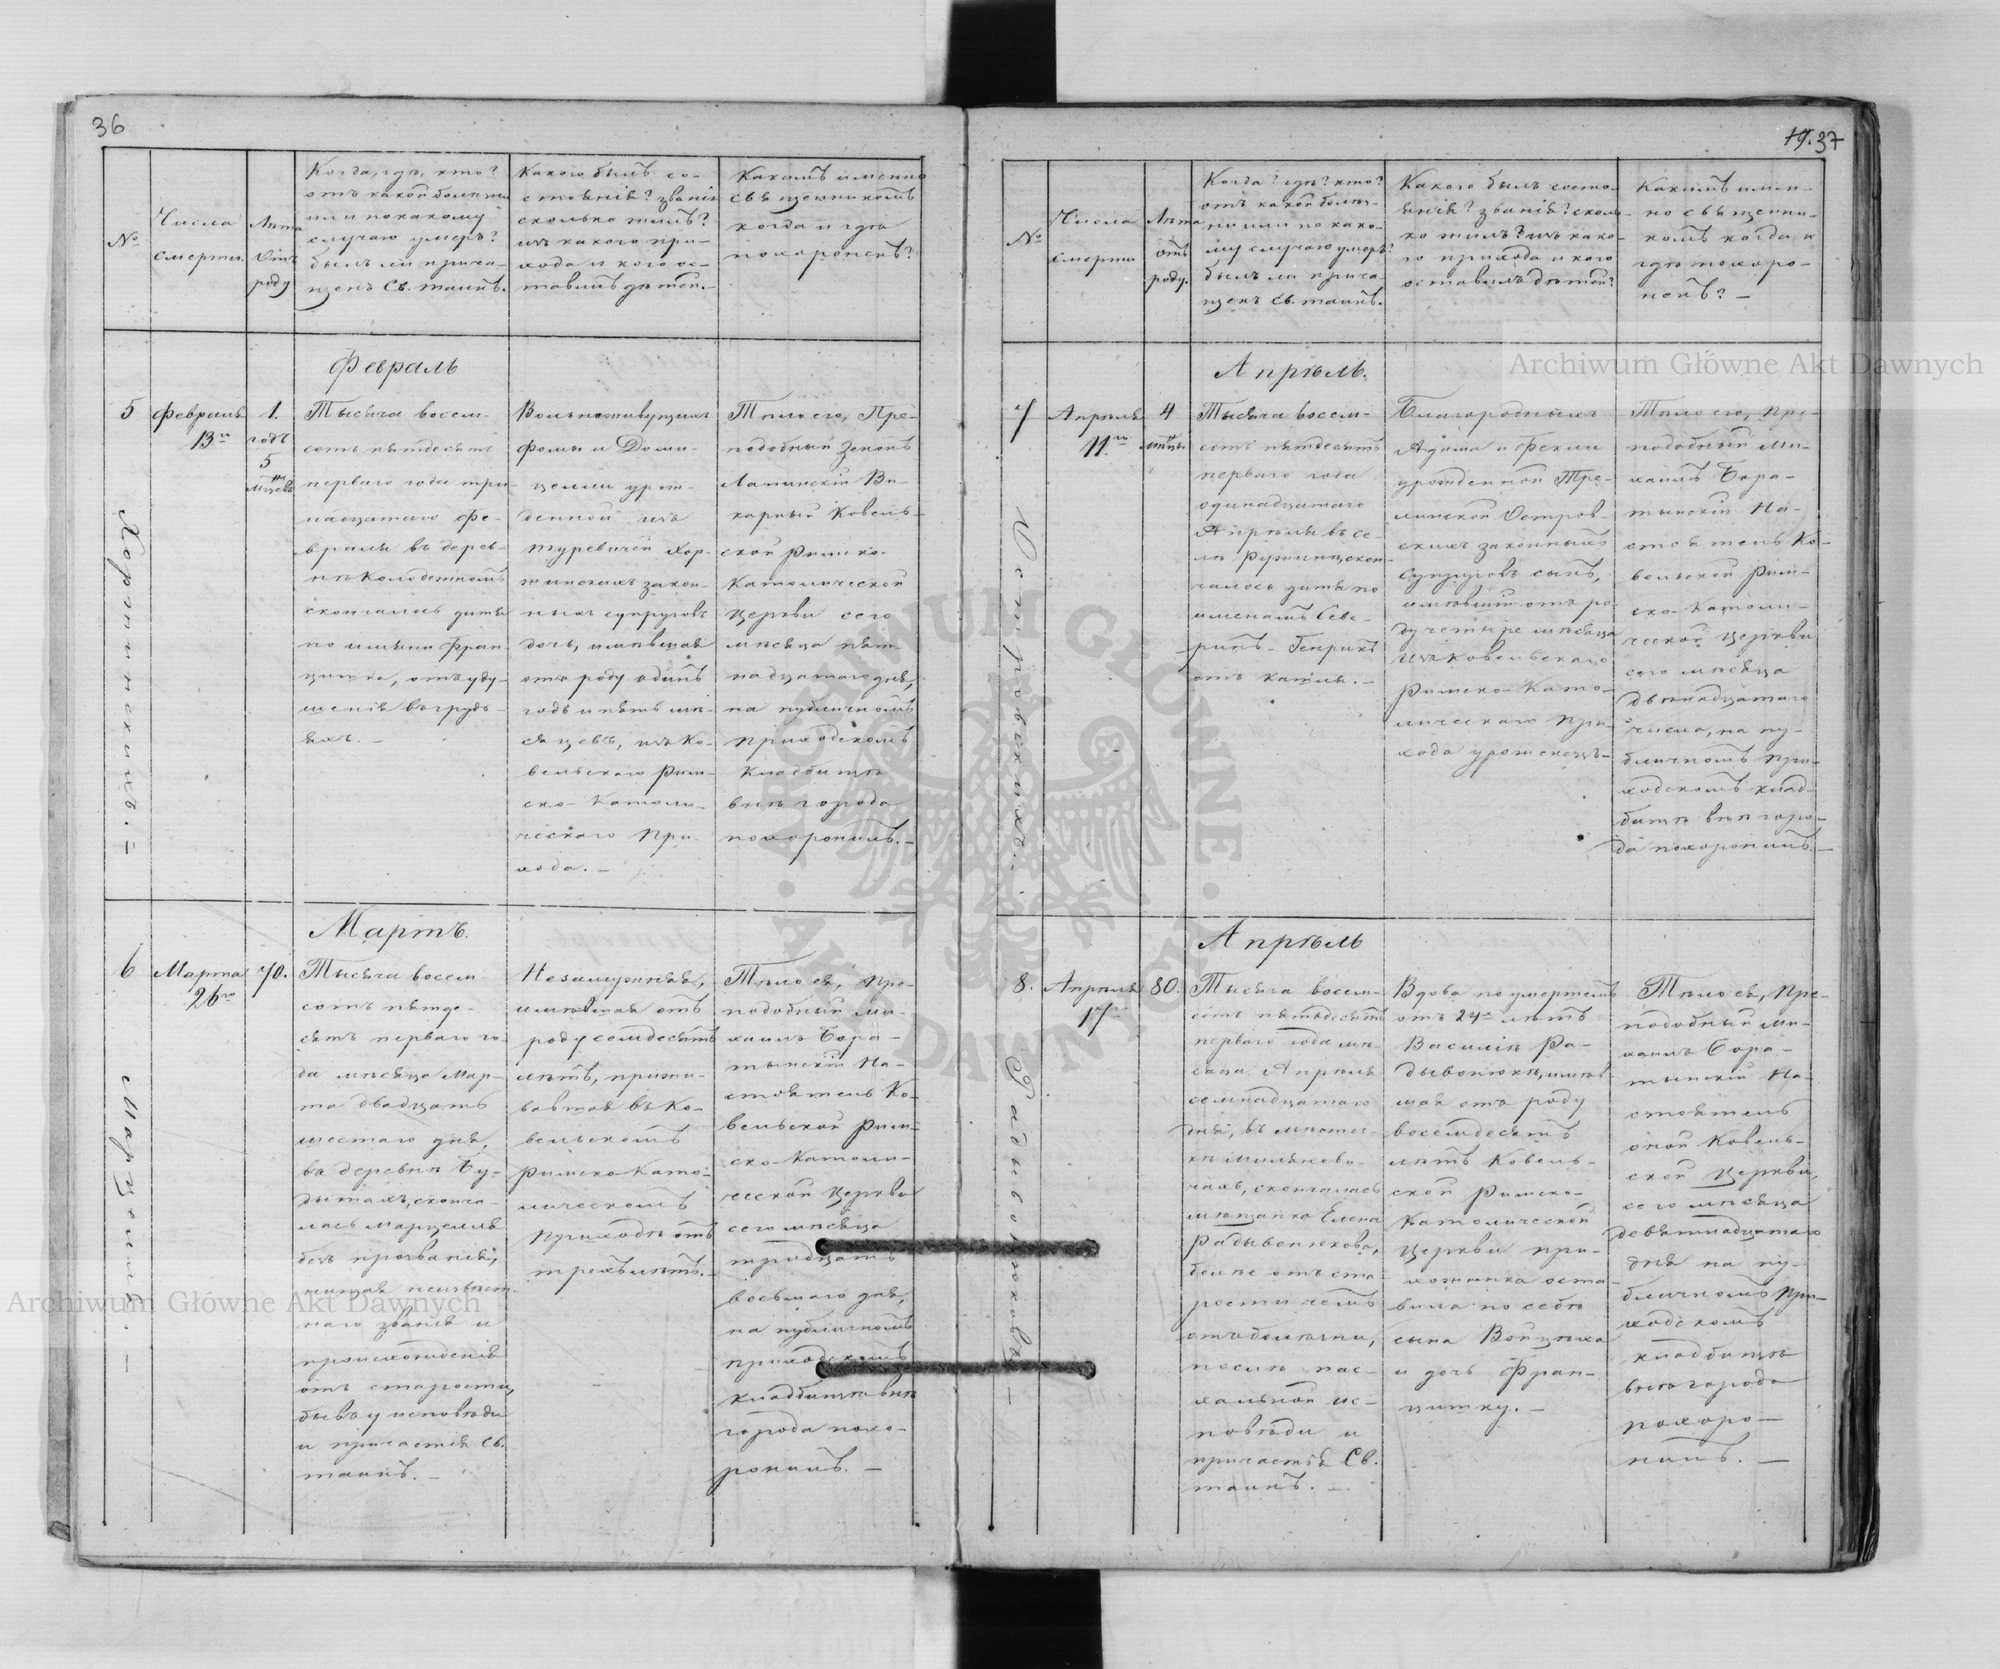 36
№
Числа
смерти.
Лѣта
Отъ
роду
Когда, гдѣ, кто?
отъ какой болезни
или по какому
случаю умеръ?
былъ ли прича-
щенъ Св. таинъ.
Какого былъ со-
стоянія? званія
сколько жилъ?
изъ какого при-
хода и кого ос-
тавилъ дѣтей.
Какимъ именно
священникомъ
когда и гдѣ
похороненъ?
Февраль
5
Февраля
13го
1.
годъ
5
мцевъ
Хоржинскихъ.
Тысяча восем-
сотъ пятдесятъ
перваго года три
надцатаго Фе-
враля въ дерев-
нѣ Колодежномъ
скончалось дитя
по имени Фран
цишка, отъ уду-
шенія въ груд-
яхъ. —
Вольноживущихъ
Фомы и Доми-
целли урож-
денной изъ
Туревичей Хор-
жинскихъ закон-
ныхъ супруговъ
дочь, имѣвшая
отъ роду одинъ
годъ и пять мѣ-
сяцевъ, изъ Ко-
вельскаго Рим-
ско-Католи-
ческаго При-
хода. —
Тѣло его, Пре-
подобный Зенонъ
Лапинскій Ви-
карный Ковель-
ской Римско-
Католической
Церкви сего
мѣсяца пят-
надцатаго дня,
на публичномъ
приходскомъ
Кладбищѣ
внѣ города
похоронилъ. —
Мартъ.
6
Марта
26го
70.
Марцелля. —
Тысяча восем-
сотъ пятде-
сятъ перваго го-
да мѣсяца Мар-
та двадцать
шестаго дня,
въ деревнѣ Бу-
дытахъ, сконча-
лась Марцелля
безъ прозванія,
нищая неизвѣст-
наго званія и
происхожденія
отъ старости,
бывъ у исповѣди
и причастія Св.
таинъ. —
Незамужняя,
имѣвшая отъ
роду семдесятъ
лѣтъ, прожи-
вавшая въ Ко-
вельскомъ
Римско-Като-
лическомъ
Приходѣ отъ
трехъ лѣтъ. —
Тѣло ея, Пре-
подобный Ми-
хаилъ Бора-
тынскій На-
стоятель Ко-
вельской Рим-
ско-Католи-
ческой Церкви
сего мѣсяца
тридцать
восьмаго дня,
на публичномъ
приходскомъ
кладбищѣ внѣ
города похо-
ронилъ. —
19. 37
№
Числа
смерти
Лѣта
отъ
роду.
Когда? гдѣ? кто?
отъ какой болѣз-
ни или по како-
му случаю умеръ?
былъ ли прича-
щенъ Св. таинъ.
Какого былъ состо-
янія? званія? сколь-
ко жилъ? изъ како-
го прихода и кого
оставилъ дѣтей?
Какимъ имен-
но священни-
комъ когда и
гдѣ похоро-
ненъ? —
Апрѣль.
7
Апрѣля
11го
4
мцы
Островскихъ.
Тысяча восем-
сотъ пятдесятъ
перваго года
одинадцатаго
Апрѣля въ се-
лѣ Ружинѣ, скон-
чалось дитя по
именамъ Севе-
ринъ-Генрихъ
отъ кашля. —
Благородныхъ
Адама и Феклы
урожденной Тре-
линской Остров-
скихъ законныхъ
супруговъ сынъ,
имѣвшій отъ ро-
ду четыре мѣсяца
изъ Ковельскаго
Римско-Като-
лическаго При-
хода уроженецъ. —
Тѣло его, Пре-
подобный Ми-
хаилъ Бора-
тынскій На-
стоятель Ко-
вельской Рим-
ско-Католи-
ческой Церкви
сего мѣсяца
двѣнадцатаго
числа, на пу-
бличномъ при-
ходскомъ клад-
бищѣ внѣ горо-
да похоронилъ. —
Апрѣль
8.
Апрѣля
17го
80.
Радывонюкова —
Тысяча восем-
сотъ пятдесятъ
перваго года мѣ-
сяца Апрѣля
семнадцатаго
дня, въ мѣстеч-
кѣ Милянови-
чахъ, скончалась
мѣщанка Елена
Радывонюкова,
болѣе отъ ста-
рости чемъ
отъ болѣзни,
послѣ пас-
хальной ис-
повѣди и
причастія Св.
таинъ. —
Вдова по умершемъ
отъ 24хъ лѣтъ
Василіѣ Ра-
дывонюкѣ, имѣв-
шая отъ роду
восемдесятъ
лѣтъ Ковель-
ской Римско-
Католической
Церкви при-
хожанка оста-
вила по себѣ
сына Войцѣха
и дочь Фран-
цишку. —
Тѣло ея, Пре-
подобный Ми-
хаилъ Бора-
тынскій На-
стоятель
оной Ковель-
ской Церкви,
сего мѣсяца
девятнадцатаго
дня на пу-
бличномъ При-
ходскомъ
кладбищѣ
внѣ города
похоро-
нилъ. —
Archiwum Główne Akt Dawnych
Archiwum Główne Akt Dawnych
ARCHIWUM GŁÓWNE AKT DAWNYCH